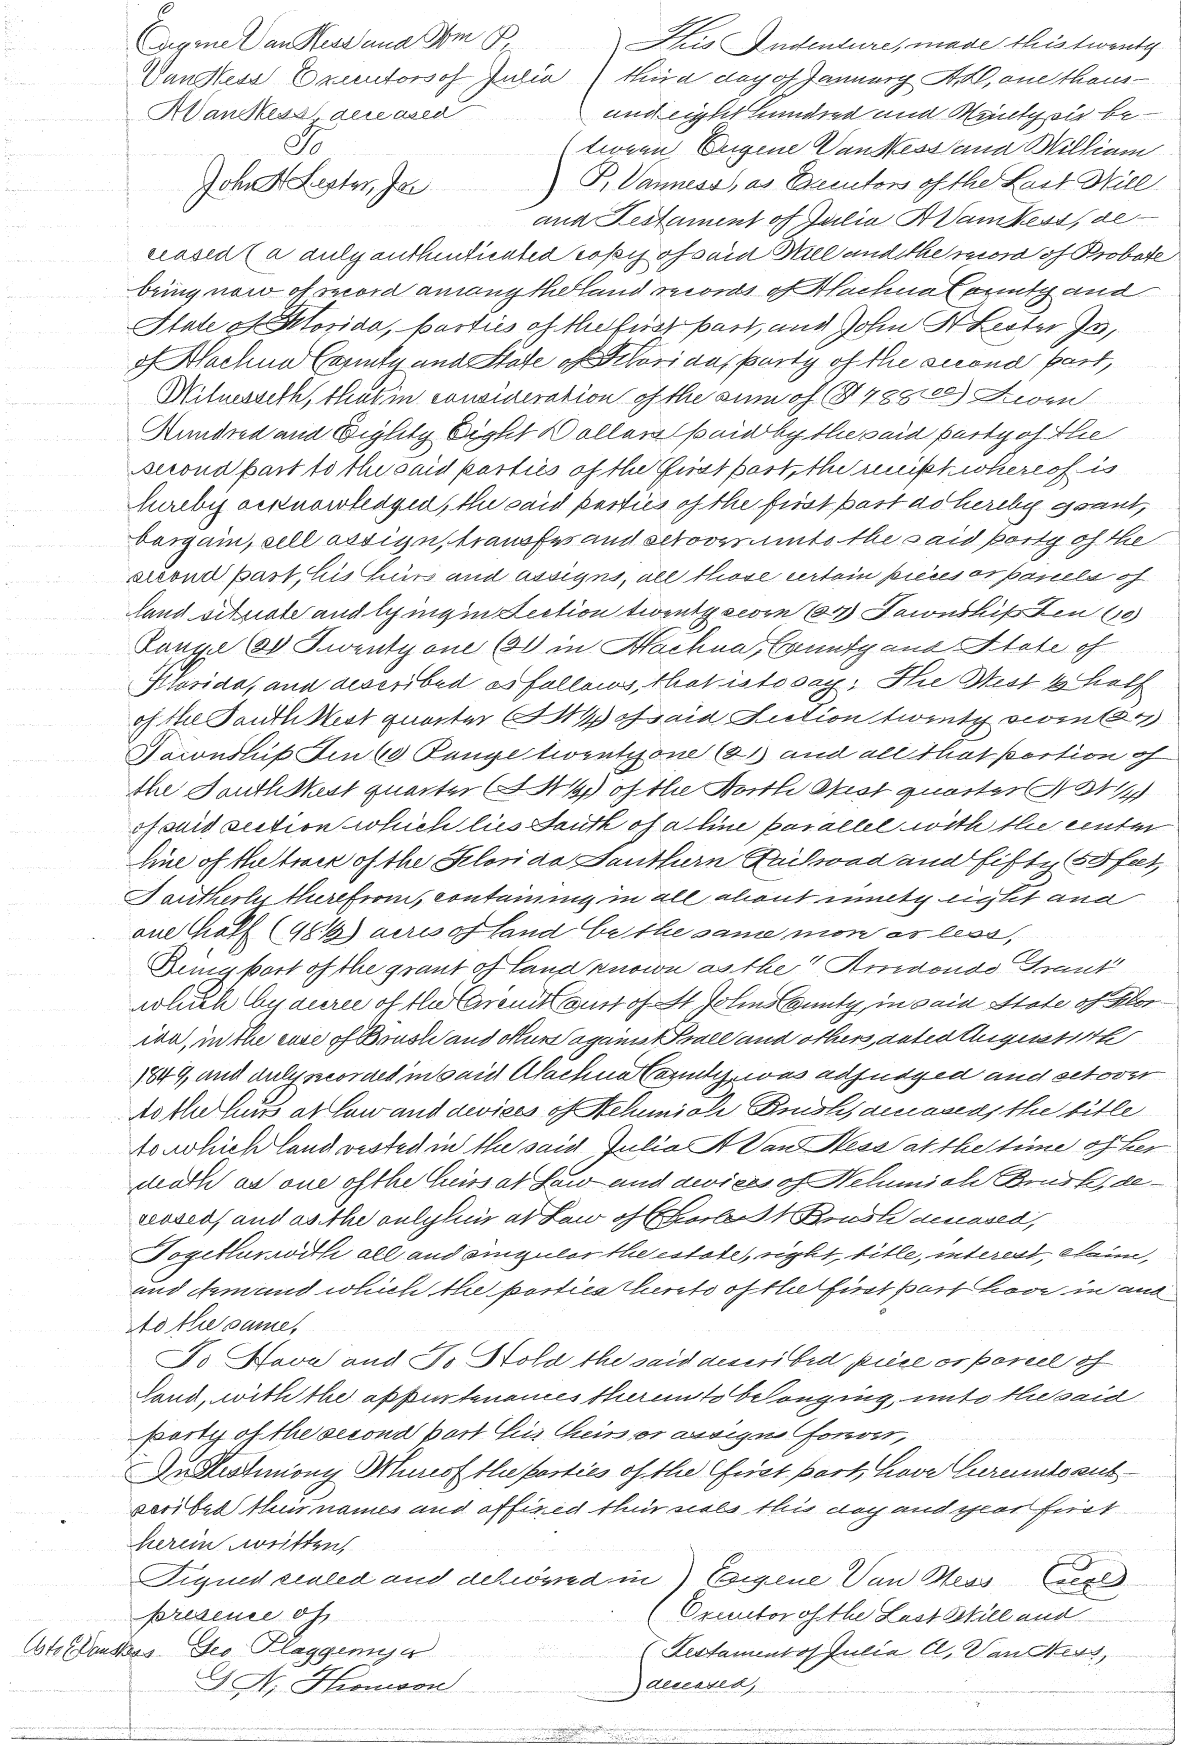 Eugene Van Ness and Wm P.
Van Ness Executors of Julia
A Van Ness, deceased
To
John A Lester, Jr.
This Indenture, made this twenty
third day of January A.D, one thous-
and eight hundred and Ninety six be-
tween Eugene Van Ness and William
P. Vanness, as Executors of the Last Will
and Testament of Julia A Van Ness, de-
ceased (a duly authenticated copy of said Will and the record of Probate
being now of record among the land records of Alachua County and
State of Florida, parties of the first part, and John A Lester Jr,
of Alachua County and State of Florida, party of the second part,
Witnesseth, that in consideration of the sum of ($788 00) Seven
Hundred and Eighty Eight Dollars paid by the said party of the
second part to the said parties of the first part, the receipt whereof is
hereby acknowledged, the said parties of the first part do hereby grant,
bargain, sell assign, transfer and set over unto the said party of the
second part, his heirs and assigns, all those certain pieces or parcels of
land situate and lying in Section twenty seven (27) Township Ten (10)
Range (21) Twenty one (21) in Alachua, County and State of
Florida, and described as follows, that is to say: The West ½ half
of the South West quarter (SW¼) of said Section twenty seven (27)
Township Ten (10 Range twenty one (21) and all that portion of
the South West quarter (SW¼) of the North West quarter (NW¼)
of said section which lies South of a line parallel with the center
line of the track of the Florida Southern Railroad and fifty (50 feet,
Southerly therefrom, containing in all about ninety eight and
one half (98½) acres of land be the same more or less,
Being part of the grant of land known as the "Arredondo Grant"
which by decree of the Circuit Court of St Johns County, in said State of Flor-
ida, in the case of Brush and others against and others, dated August
1849, and duly recorded in said Alachua County, was adjudged and set over
to the heirs at law and devices of Nehemiah Brush, deceased, the title
to which land vested in the said Julia A Van Ness at the time of her
death as one of the heirs at Law and devices of Nehemiah Brush, de-
ceased, and as the only heir at Law of Charles Brush deceased,
Together with all and singular the estate, right, title, interest, claim,
and demand which the parties hereto of the first part have in and
to the same,
To Have and To Hold the said described piece or parcel of
land, with the appurtenances thereunto belonging, unto the said
party of the second part his heirs or assigns forever,
In Testimony Whereof the parties of the first part, have hereunto sub-
scribed their names and affixed their seals this day and year first
herein written,
Signed sealed and delivered in
presence of,
As to E Van Ness Geo Plaggemeyer
G N. Thomson
Eugene Van Ness (seal)
Executor of the Last Will and
Testament of Julia A, Van Ness,
deceased,